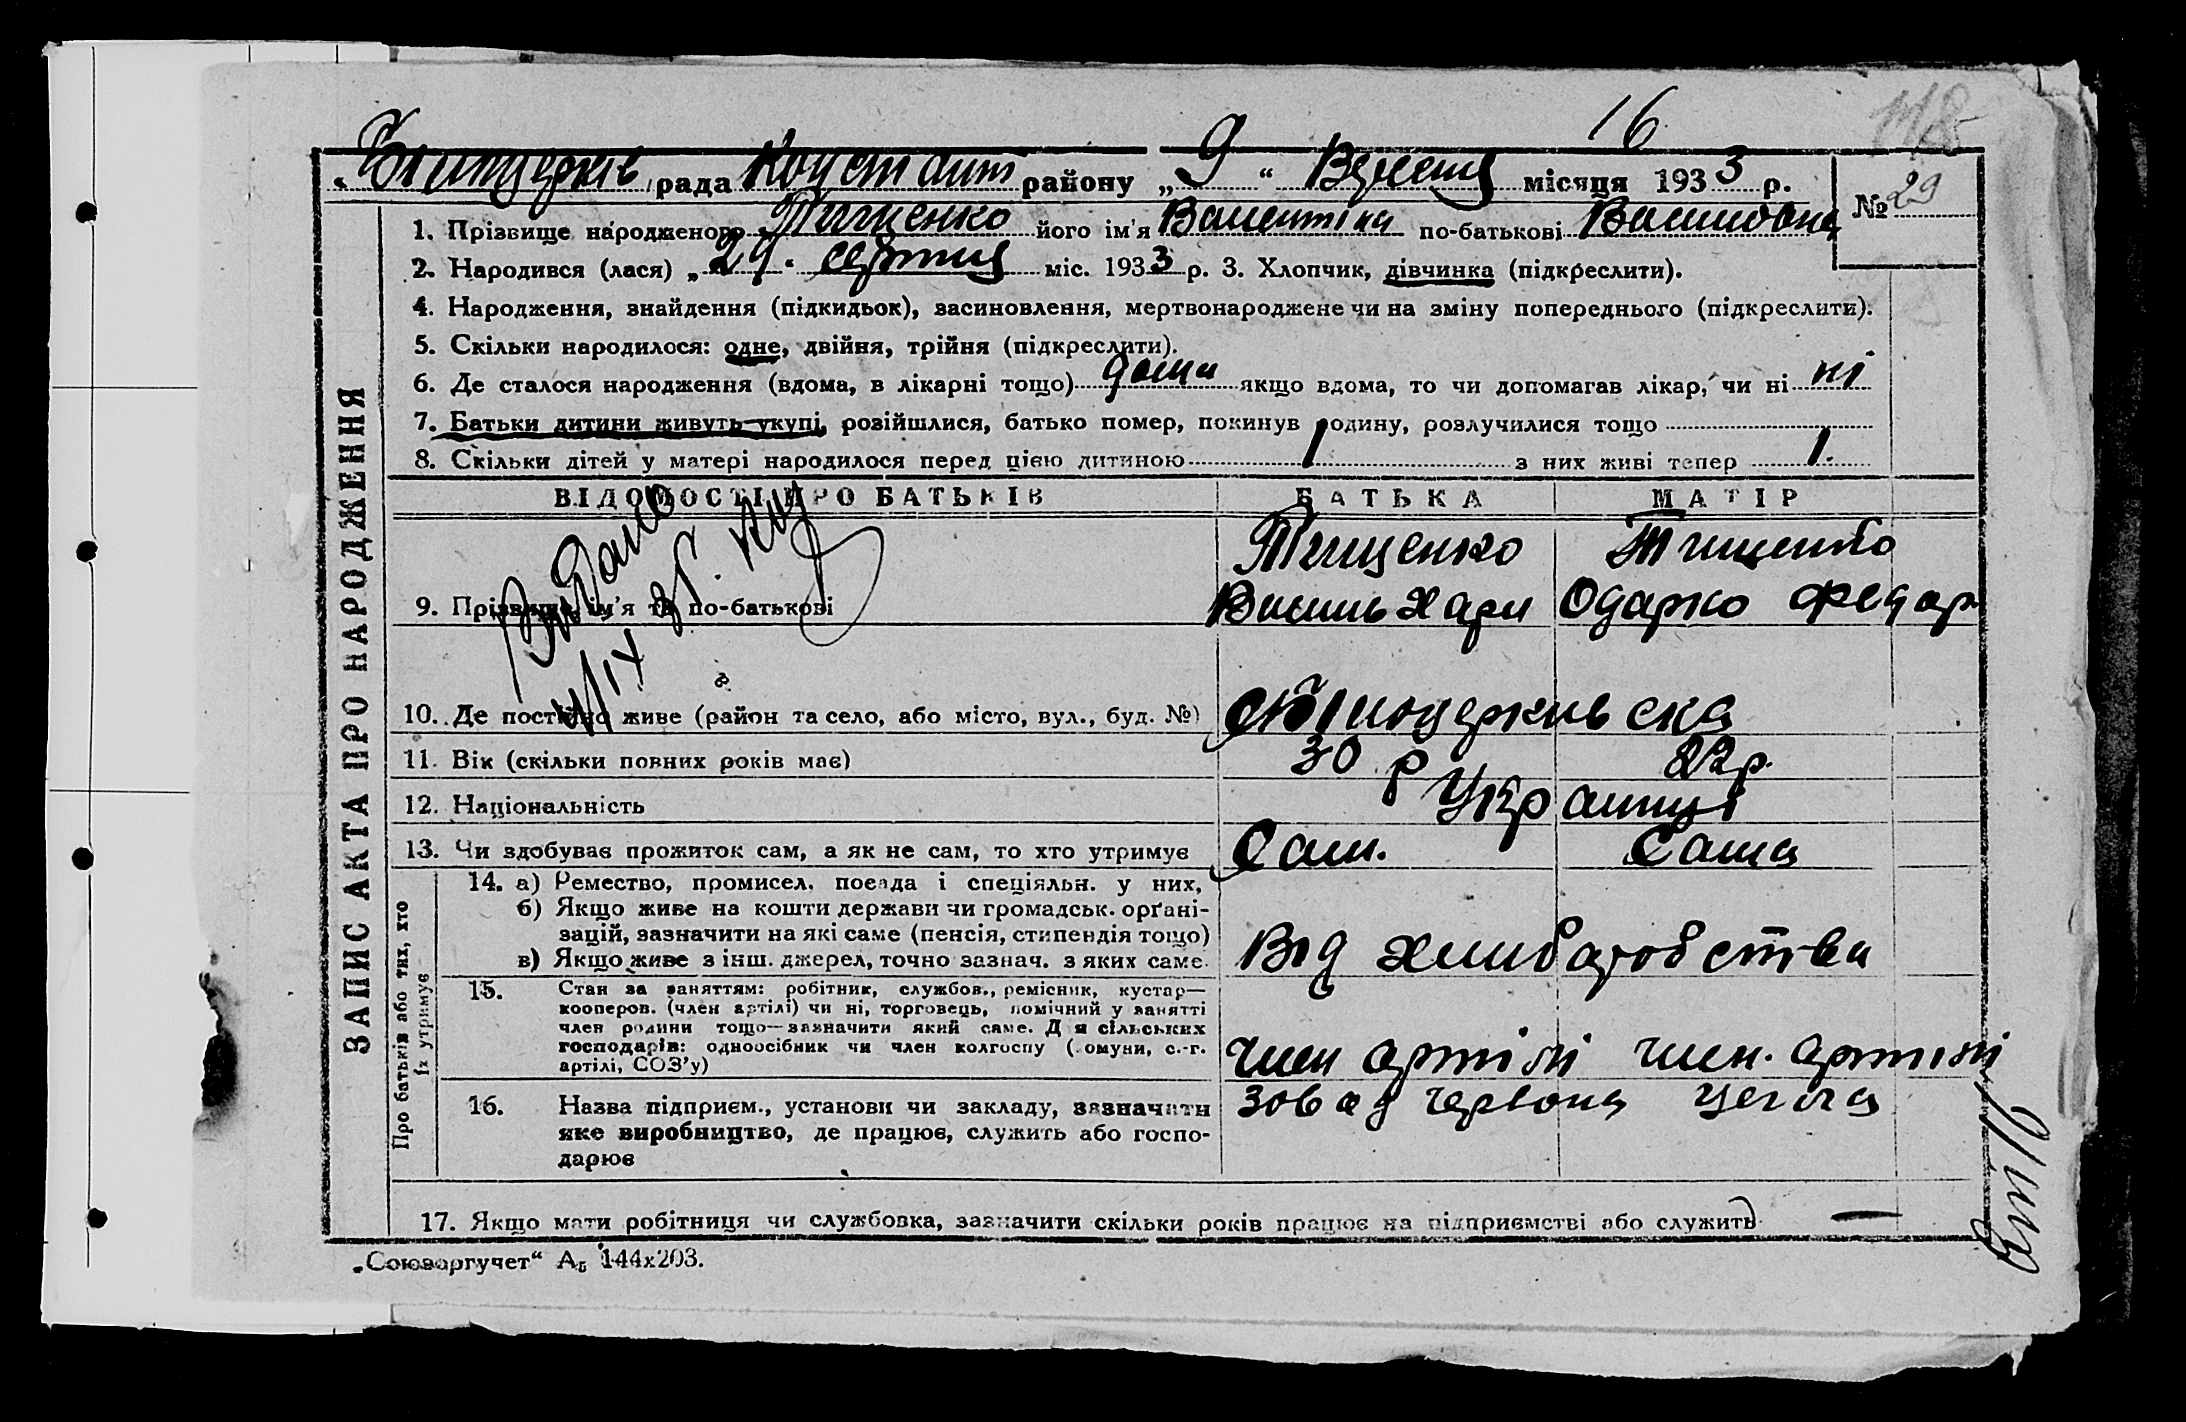 16
118
рада Констант району „ 9 “ Вересня місяця 1933 р.
№ 29
1. Прізвище народженого Тищенко його ім'я Валентіна по-батькові Васильовна
2. Народився (лася) „ 29 “ серпня міс. 1933 р. 3. Хлопчик, дівчинка (підкреслити).
4. Народження, знайдення (підкидьок), засиновлення, мертвонароджене чи на зміну попереднього (підкреслити).
5. Скільки народилося: одне, двійня, трійня (підкреслити).
6. Де сталося народження (вдома, в лікарні тощо) дома якщо вдома, то чи допомагав лікар, чи ні ні
7. Батьки дитини живуть укупі, розійшлися, батько помер, покинув родину, розлучилися тощо
8. Скільки дітей у матері народилося перед цією дитиною 1 з них живі тепер 1.
ЗАПИС АКТА ПРО НАРОДЖЕННЯ
ВІДОМОСТІ ПРО БАТЬКІВ БАТЬКА МАТІР
Видано
Тищенко Тищенко
9. Прізвище, ім'я та по-батькові Василь Хари Одарко Федор
10. Де постійно живе (район та село, або місто, вул., буд. №)
11. Вік (скільки повних років має) 30 р 22 р.
12. Національність Українці
13. Чи здобуває прожиток сам, а як не сам, то хто утримує Сам. Сама
Про батьків або тих, хто їх утримує
14. а) Ремество, промисел, посада і спеціяльн. у них,
б) Якщо живе на кошти держави чи громадськ. орґані-
зацій, зазначити на які саме (пенсія, стипендія тощо)
в) Якщо живе з інш. джерел, точно зазнач. з яких саме. Від хлиборобства
15. Стан за заняттям: робітник, службов., ремісник, кустар—
кооперов. (член артілі) чи ні, торговець, помічний у занятті
член родини тощо—зазначити який саме. Для сільських
господарів: одноосібник чи член колгоспу (комуни, с.-г.
артілі, СОЗ'у) член артілі член. артілі
16. Назва підприєм., установи чи закладу, зазначити завод червона цегла
яке виробництво, де працює, служить або госпо-
дарює
17. Якщо мати робітниця чи службовка, зазначити скільки років працює на підприємстві або служить —
„Союзоргучет“ А5 144х203.